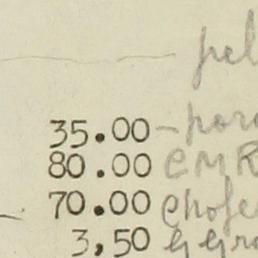 pel
35.00 - por
80.00 CMR
70.00 Chofe
3,50 ggra